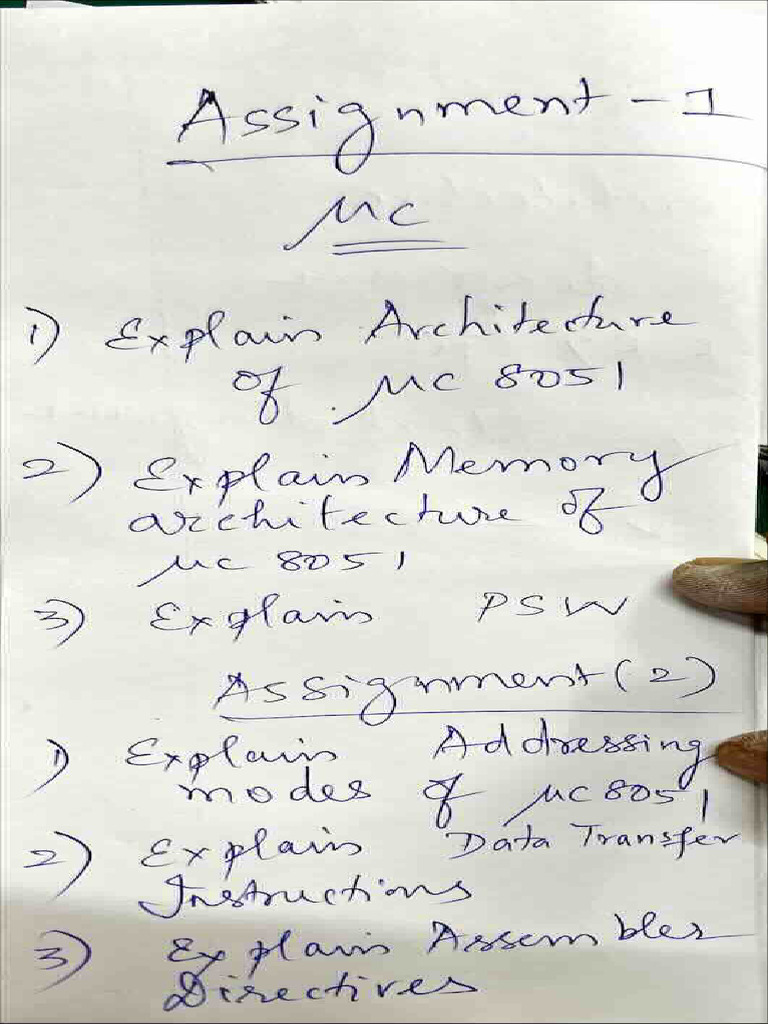 Assignment - 1
μc
1) Explain Architecture
of μc 8051
2) Explain Memory
architecture of
μc 8051
3) Explain PSW
Assignment (2)
1) Explain Addressing
modes of μc 8051
2) Explain Data Transfer
Instructions
3) Explain Assembler
Directives